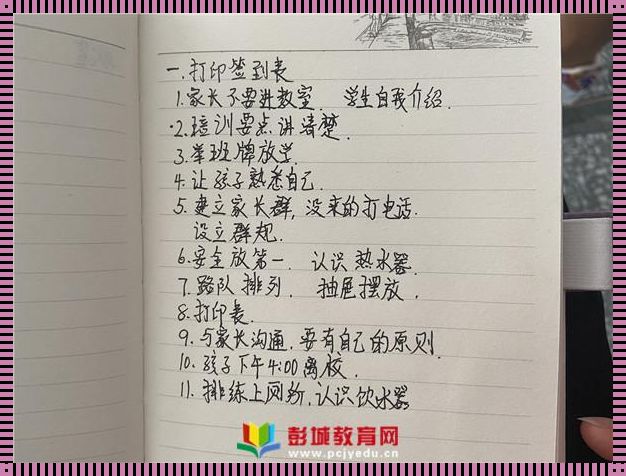 一.打印签到表
1.家长不要进教室. 学生自我介绍.
2.培训要点讲清楚.
3.举班牌放学
4.让孩子熟悉自己.
5.建立家长群,没来的打电话.
设立群规.
6.安全放第一. 认识热水器.
7.路队排列. 抽屉摆放.
8.打印表.
9.与家长沟通.要有自己的原则.
10.孩子下午4:00离校.
11.排练上厕所.认识饮水器
彭城教育网
www.pcjyedu.cn